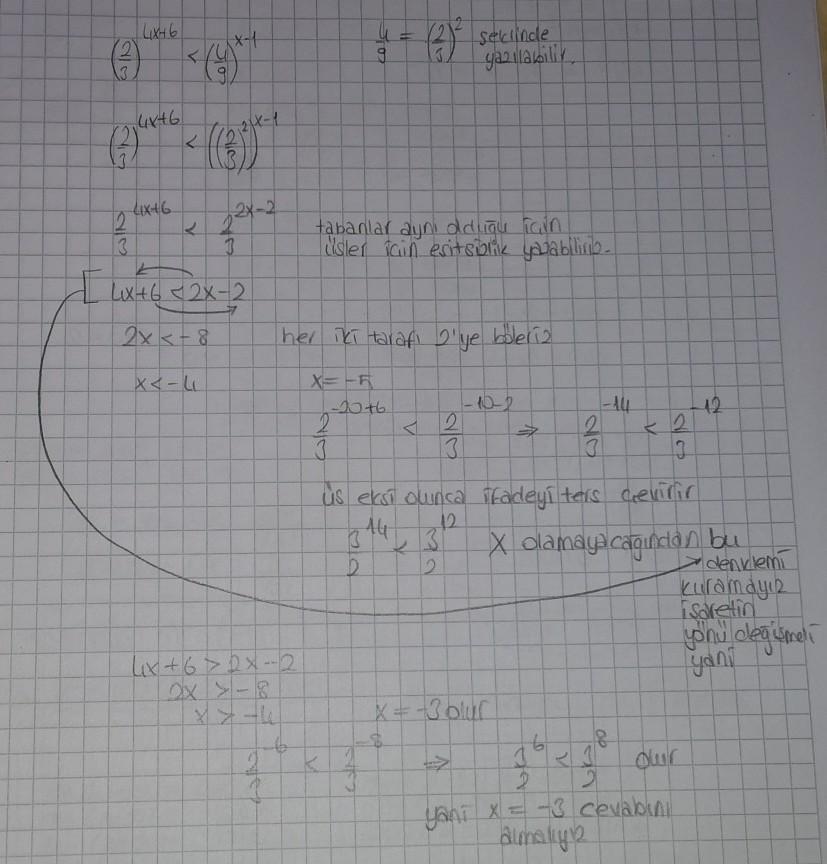 (2/3)^(4x+6) < (4/9)^(x-1)    4/9 = (2/3)^2 şeklinde
yazılabilir.
(2/3)^(4x+6) < ((2/3)^2)^(x-1)
2/3^(4x+6) < 2/3^(2x-2)    tabanlar aynı olduğu için
üsler için eşitsizlik yapabiliriz.
4x+6 < 2x-2
2x < -8    her iki tarafı 2'ye böleriz
x < -4    x = -5
2/3^(-20+6) < 2/3^(-10-2) ⇒ 2/3^(-14) < 2/3^(-12)
üs eksi olunca ifadeyi ters çevirir
3/2^14 < 3/2^12    X olamayacağından bu
denklemi
kuramayız
işaretin
yönü değişmeli
yani
4x+6 > 2x-2
2x > -8
x > -4    x = -3 olur
2/3^(-6) < 2/3^(-8) ⇒ 3/2^6 < 3/2^8 olur
yani x = -3 cevabını
almalıyız